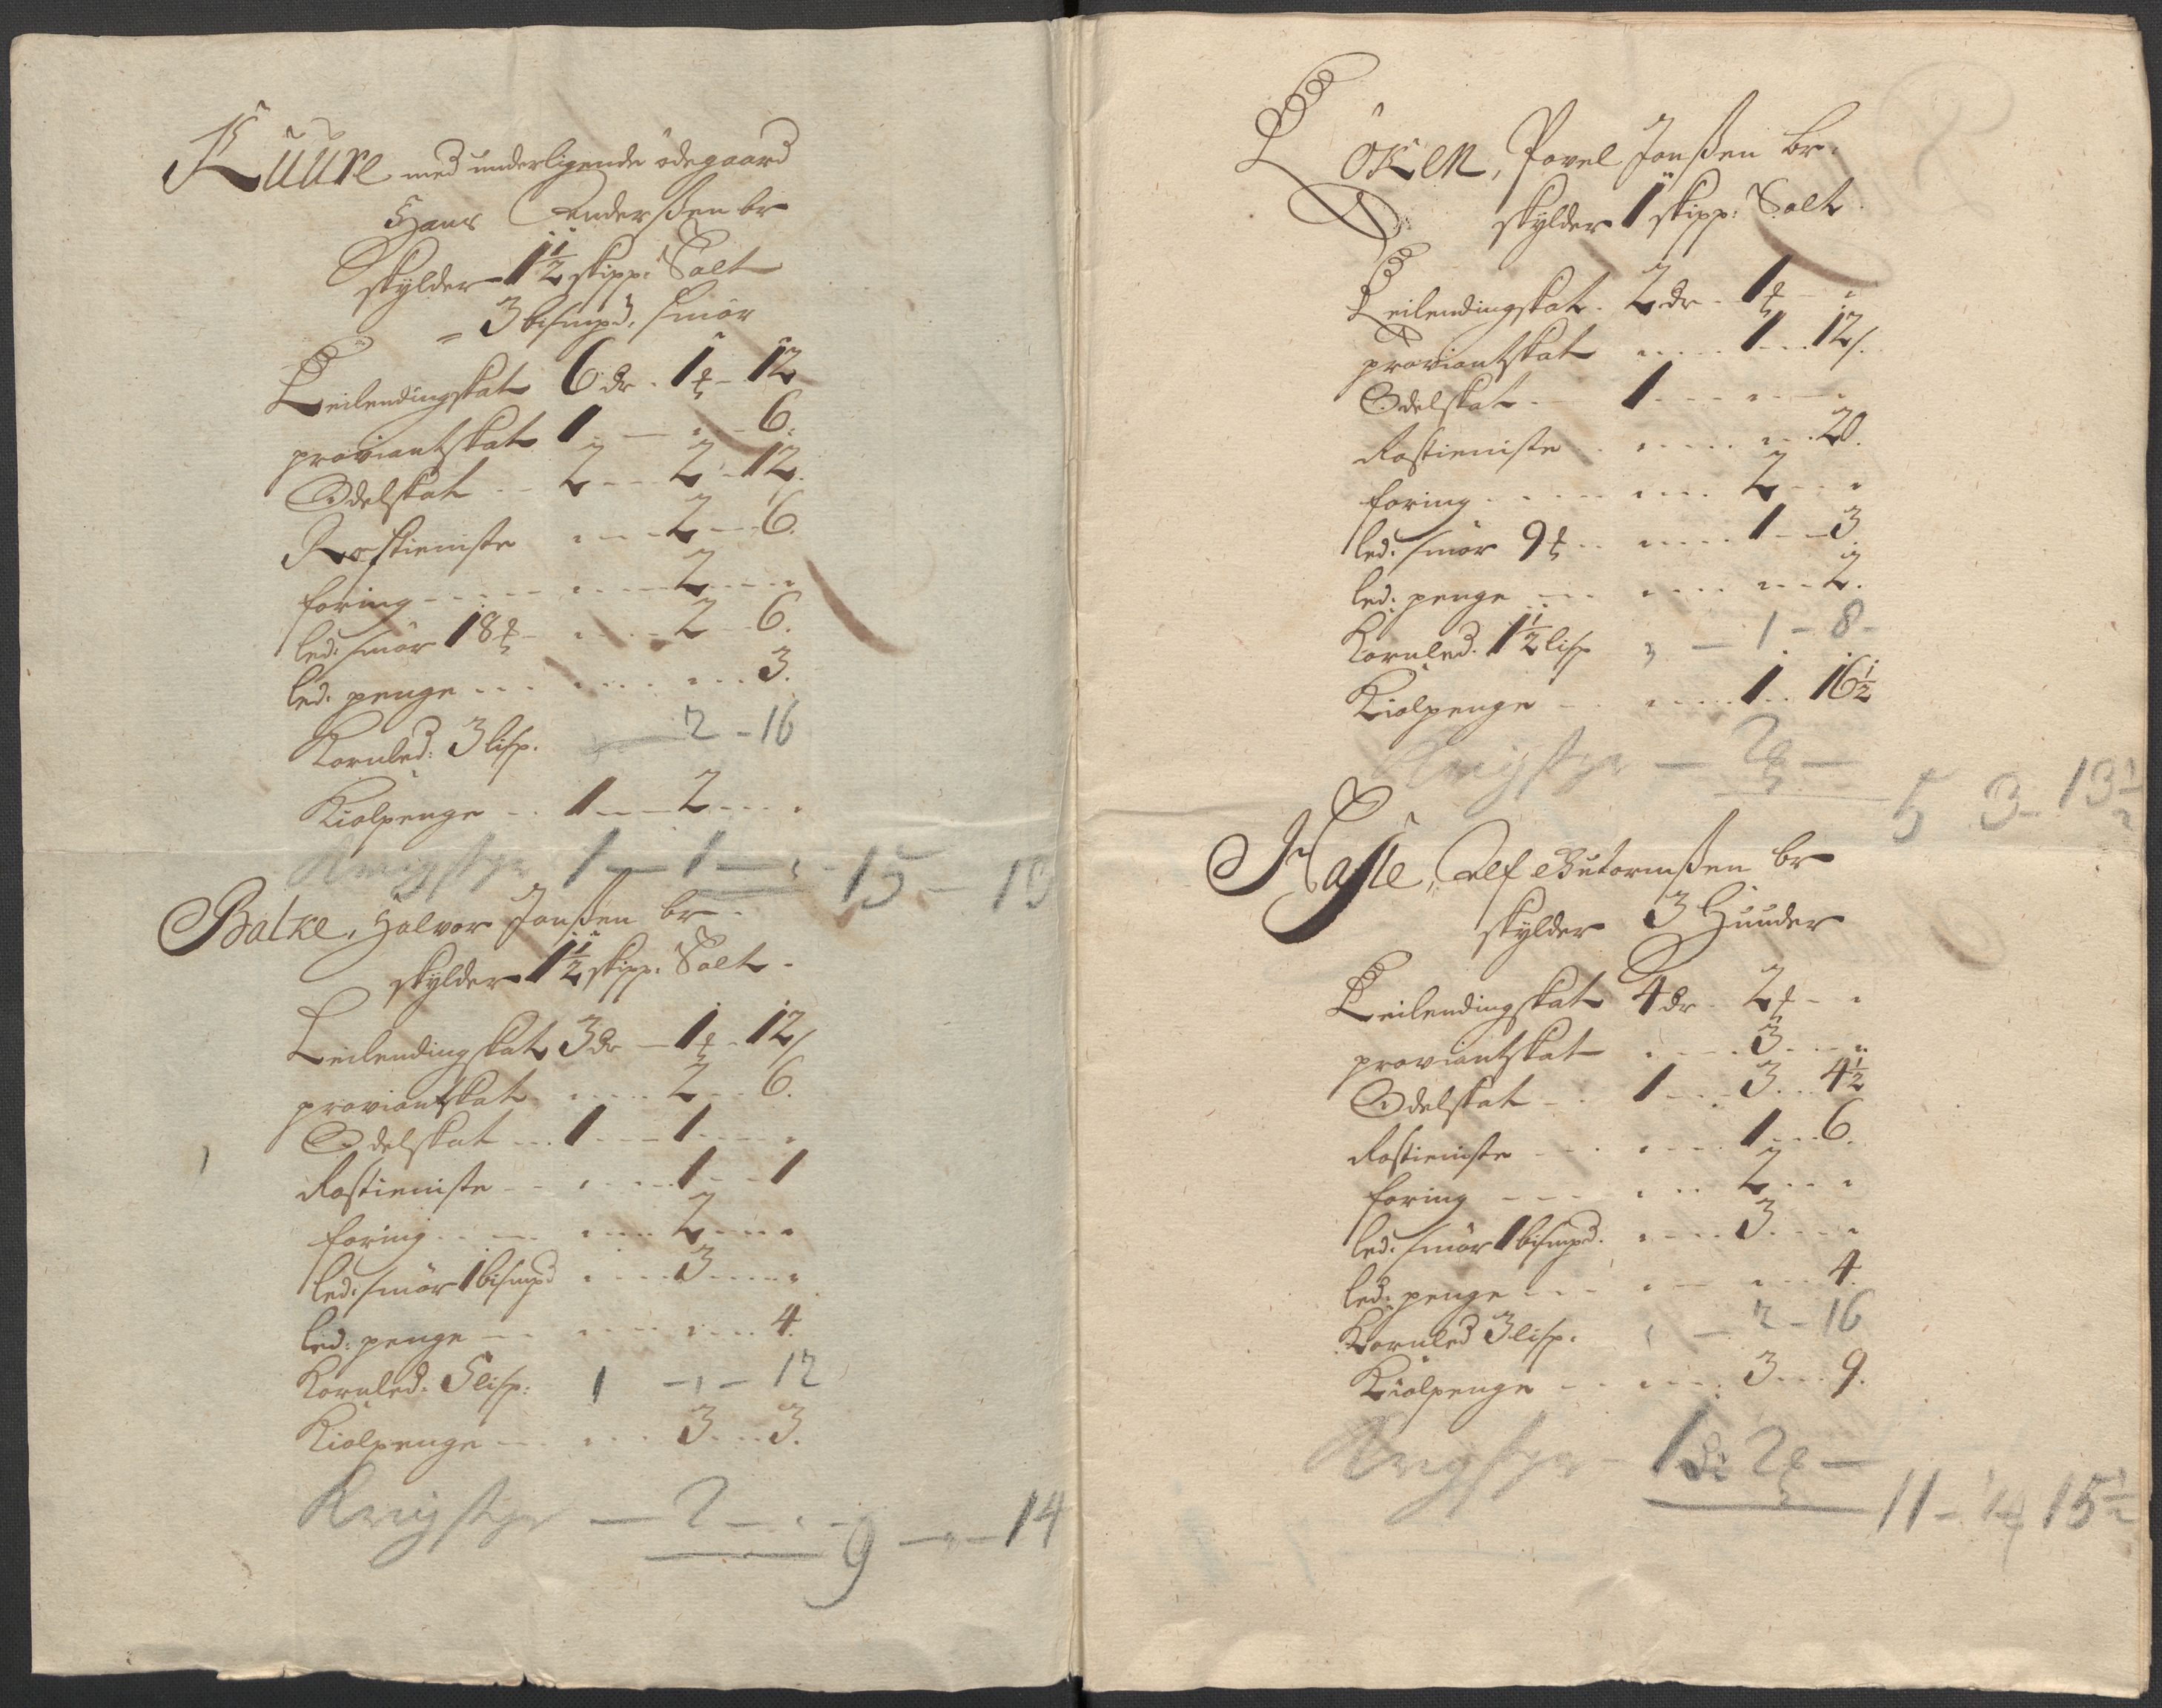 Kuure med underligende ödegaard
Hans Anderßen br
skylder 1½ skipp: Salt
- 3 bismpd: smör
Leilendingskat 6 dr - 1 ℔ - 12
proviantskat 1 - - 6.
Odelskat - - 2 - - 2 - 12.
Rostieniste - - 2 - - 6.
foring - - - 2 - - -
led: smör 18 ℔ - - 2 - 6.
led: penge - - - 3.
Kornled: 3 lisp. - 2 - 16
Kiolpenge - - 1 - - 2 - - -
1 - 1 - - 15 - 19
Balke, Halvor Jonßen br -
skylder 1½ skipp: Salt -
Leilendingskat 3 dr - 1 ℔ - 12 /
proviantskat - - - 2 - - 6.
Odelskat - - 1 - - 1 - - -
Rostieniste - - - 1 - - 1
foring - - - 2 - - -
led: smör 1 bismpd - - 3 - - -
led: penge - - - 4.
Kornled: 5 lisp: 1 - - 12
Kiolpenge - - - 3 - - 3.
- 2 - - 9 - - 14
Löken, Povel Jonßen br.
skylder 1 skipp: Salt
Leilendingskat - 2 dr - 1 ℔ - -
proviantskat - - - 1 - - 12 /.
Odelskat - - 1 - - -
Rostieniste - - - 20.
foring - - - 2 - - -
led: smör 9 ℔ - - - 1 - - 3.
led: penge - - - 2.
Kornled. 1½ lisp - 1 - 8 -
Kiolpenge - - - 1 - - 16½
- 2 ℔ -
5 3 - 13½
Hasle, Alf Gutormßen br
skylder 3 Huuder
Leilendingskat 4 dr - 2 ℔ - -
proviantskat - - - 3 - - -
Odelskat - - 1 - - 3 - - 4½
Rostieniste - - - 1 - - 6.
foring - - - 2 - - -
led: smör 1 bismpd. - - 3 - - -
led: penge - - - 4.
Kornled 3 lisp. - 2 - 16
Kiolpenge - - - 3 - - 9.
- 1 dr 2 ℔ -
11 - 15½